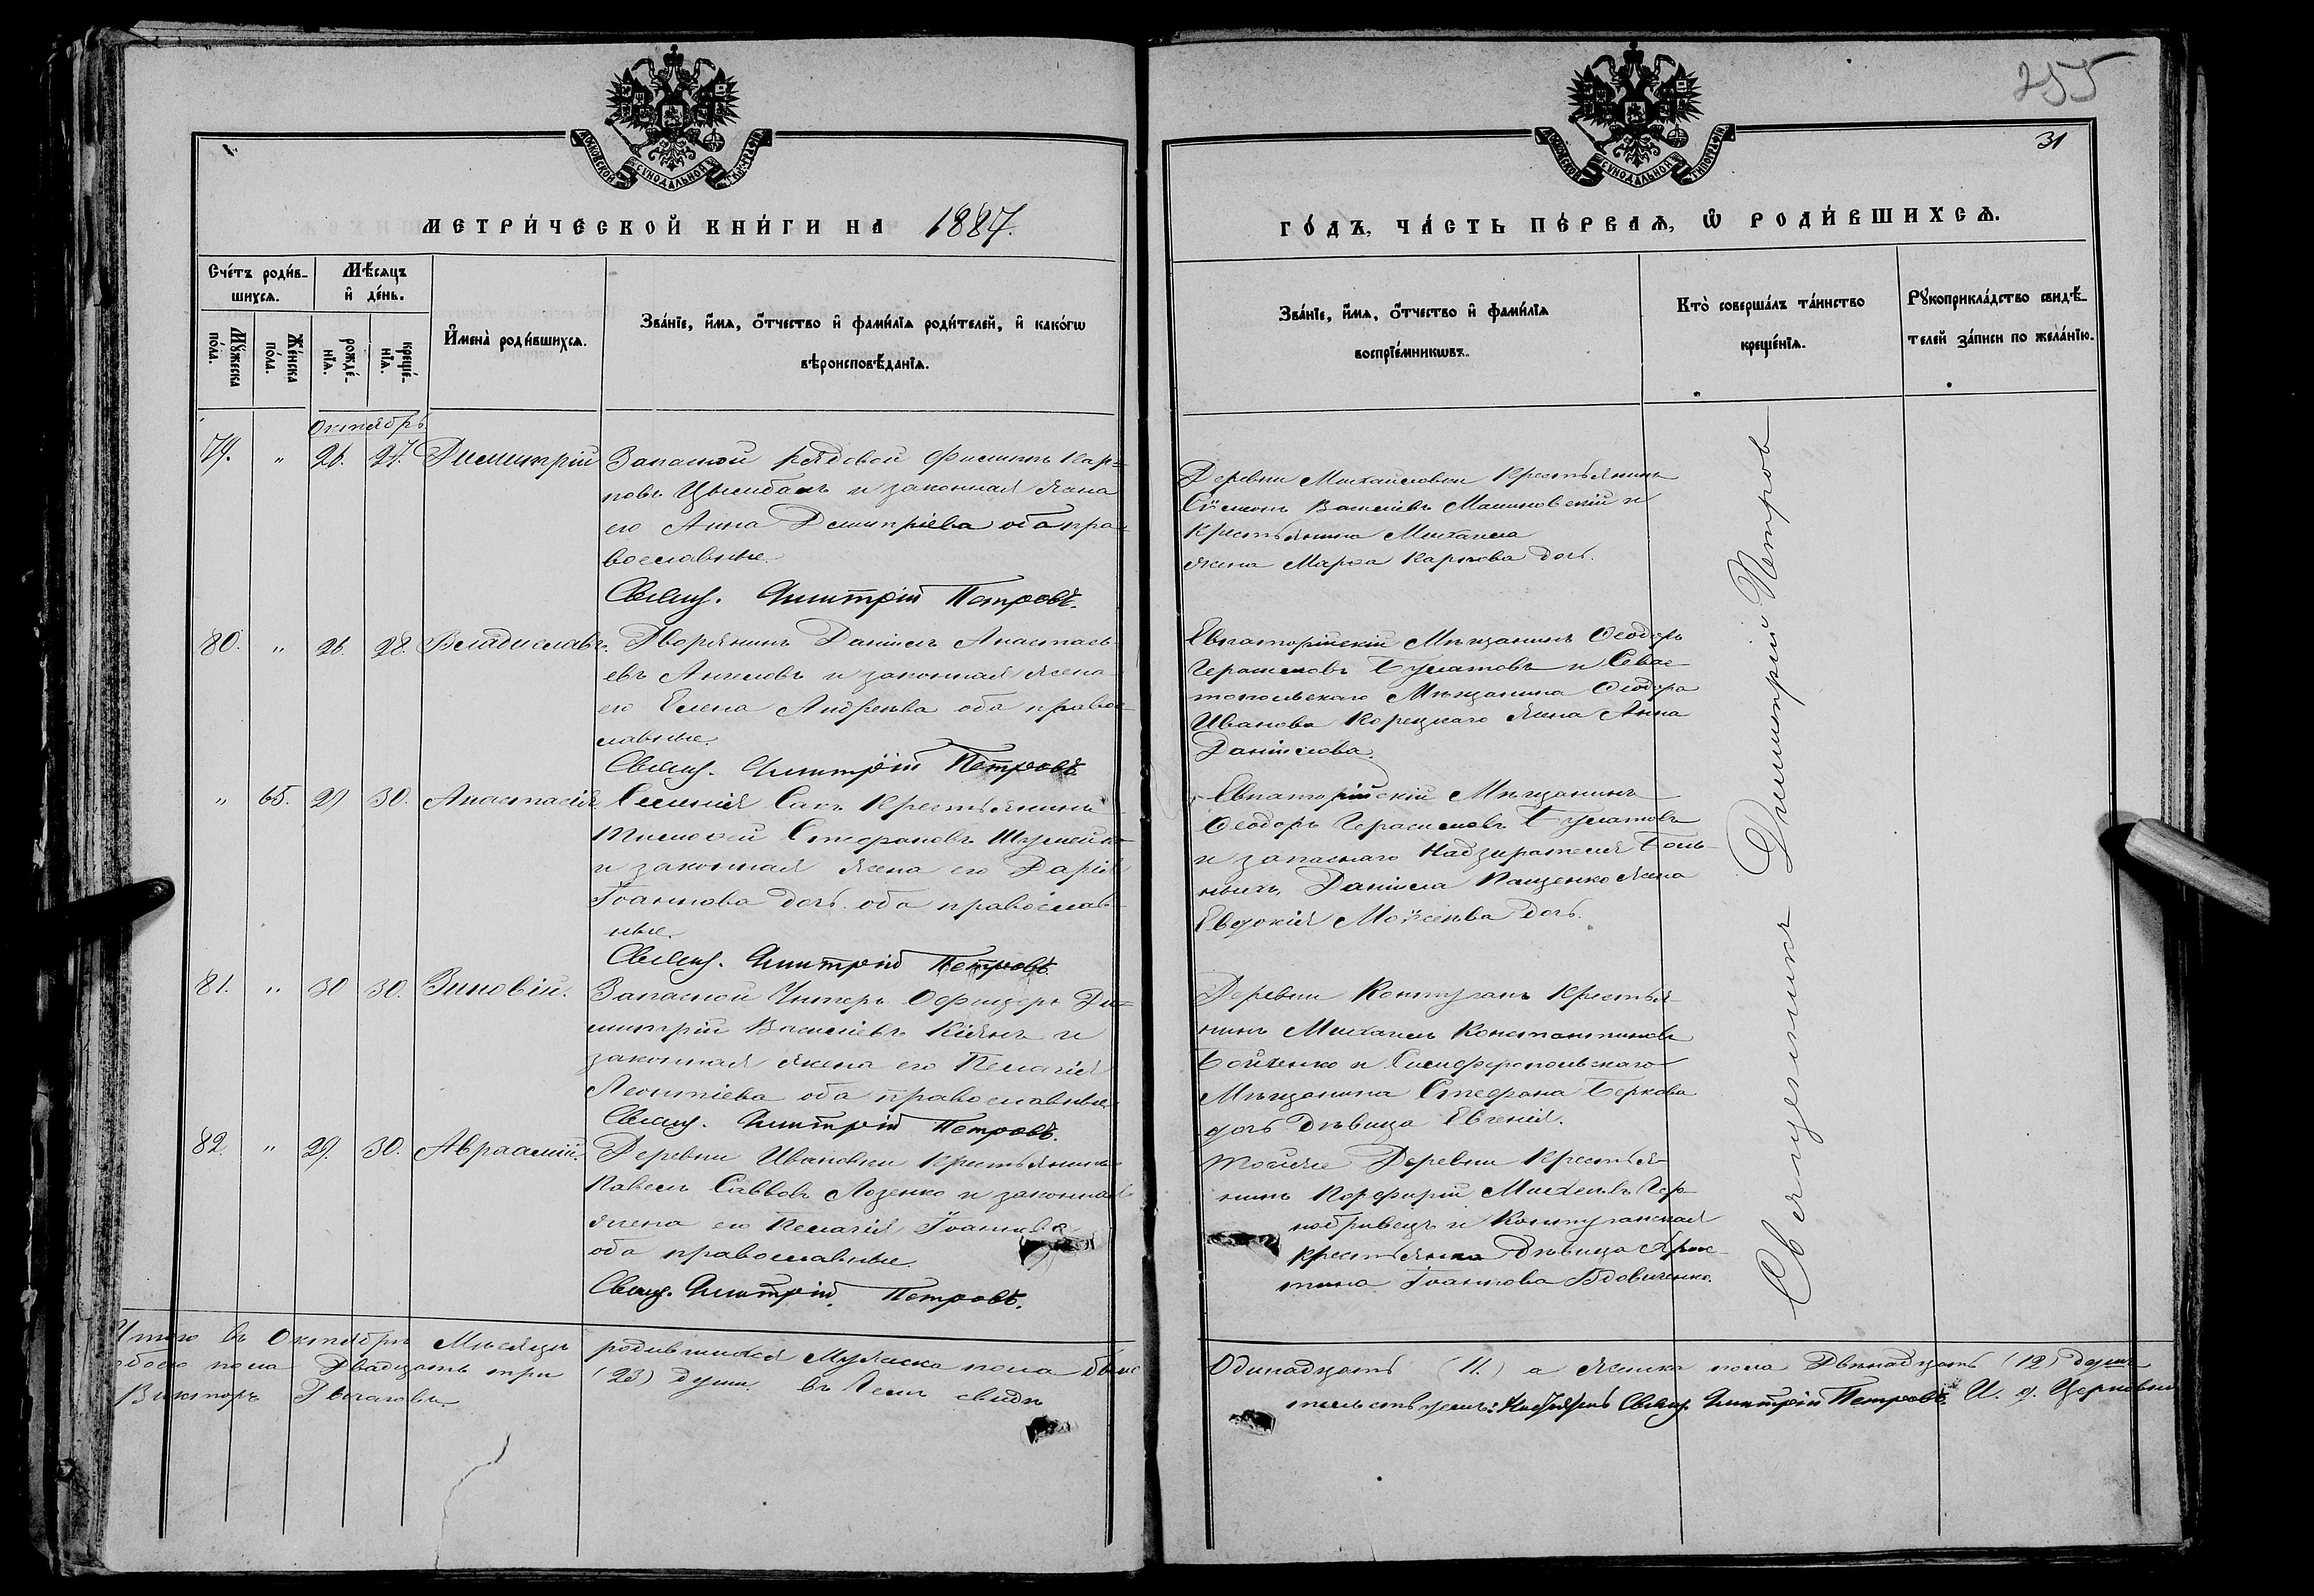 255
31
МОСКОВСКОЙ СѴНОДАЛЬНОЙ ТИПОГРАФІИ
МОСКОВСКОЙ СѴНОДАЛЬНОЙ ТИПОГРАФІИ
МЕТРИ́ЧЕСКОЙ КНИ́ГИ НА 1887.
ГО́ДЪ, ЧА́СТЬ ПЕ́РВАѦ, Ѡ҆ РОДИ́ВШИХСѦ.
Сче́тъ роди́в-
шихсѧ.
Мꙋ́жеска
по́ла.
Же́нска
по́ла.
Мѣ́сѧцъ
и҆ де́нь.
рожде́-
нїѧ.
креще́-
нїѧ.
И҆мена̀ роди́вшихсѧ.
Зва́нїе, и҆́мѧ, ѻ҆́тчество и҆ фами́лїѧ роди́телей, и҆ како́гѡ
вѣроисповѣ́данїѧ.
Зва́нїе, и҆́мѧ, ѻ҆́тчество и҆ фами́лїѧ
воспрїе́мникѡвъ.
Кто̀ соверша́лъ та́инство
креще́нїѧ.
Рꙋкоприкла́дство свидѣ́-
телей за́писи по жела́нїю.
Октябрь
79. " 26. 27. Димитрій Запасной рядовой Филиппъ Кар-
повъ Цымбалъ и законная жена
его Анна Димитріева оба пра-
вославные.
Свящ. Димитрій Петровъ.
Деревни Михайловки Крестьянинъ
Сѵмеонъ Василіевъ Малиновскій и
Крестьянина Михаила
жена Марѳа Карпова дочь.
80. " 26. 28. Владиславъ. Дворянинъ Даніилъ Анастась-
евъ Ангеловъ и законная жена
его Елена Андреева оба право-
славные.
Свящ. Димитрій Петровъ
Евпаторійскій Мѣщанинъ Ѳеодоръ
Герасимовъ Булатовъ и Севас-
топольскаго Мѣщанина Ѳеодора
Иванова Корецкаго жена Анна
Даніилова.
" 65. 29 30. Анастасія Селенія Сакъ Крестьянинъ
Тимоѳей Стефановъ
и законная жена его Дарія
Іоаннова дочь оба православ-
ные.
Свящ. Димитрій Петровъ.
Евпаторійскій Мѣщанинъ
Ѳеодоръ Герасимовъ Булатовъ
и запаснаго Надзирателя Боль-
ныхъ Даніила Пащенко жена
Евдокія Моѵсеева дочь.
81. " 30 30. Зиновій. Запасной Унтеръ Офицеръ Ди-
митрій Василіевъ Кіянъ и
законная жена его Пелагія
Леонтіева оба православные
Свящ. Димитрій Петровъ.
Деревни Контуганъ Крестья-
нинъ Михаилъ Константиновъ
Бойченко и Симферопольскаго
Мѣщанина Стефана Беркова
дочь дѣвица Евгенія.
82. " 29. 30. Авраамій. Деревни Ивановки Крестьянинъ
Павелъ Саввовъ Лозенко и законная
жена его Пелагія Іоаннова
оба православные.
Свящ. Димитрій Петровъ.
Тойже Деревни Крестья-
нинъ Порфирій Михеевъ Чер-
нобривецъ и Контуганская
крестьянка дѣвица Хрис-
тина Іоаннова Вдовиченко.
Священникъ Димитрій Петров
Итого въ Октябрѣ Мѣсяцѣ родившихся Мужеска пола было Одинадцать (11.) а женска пола Двѣнадцать (12) душъ
обоего пола Двадцать три (23) души. въ чемъ свидѣ тельствуемъ: Свящ. Димитрій Петровъ. И. д. Церковни
Викторъ